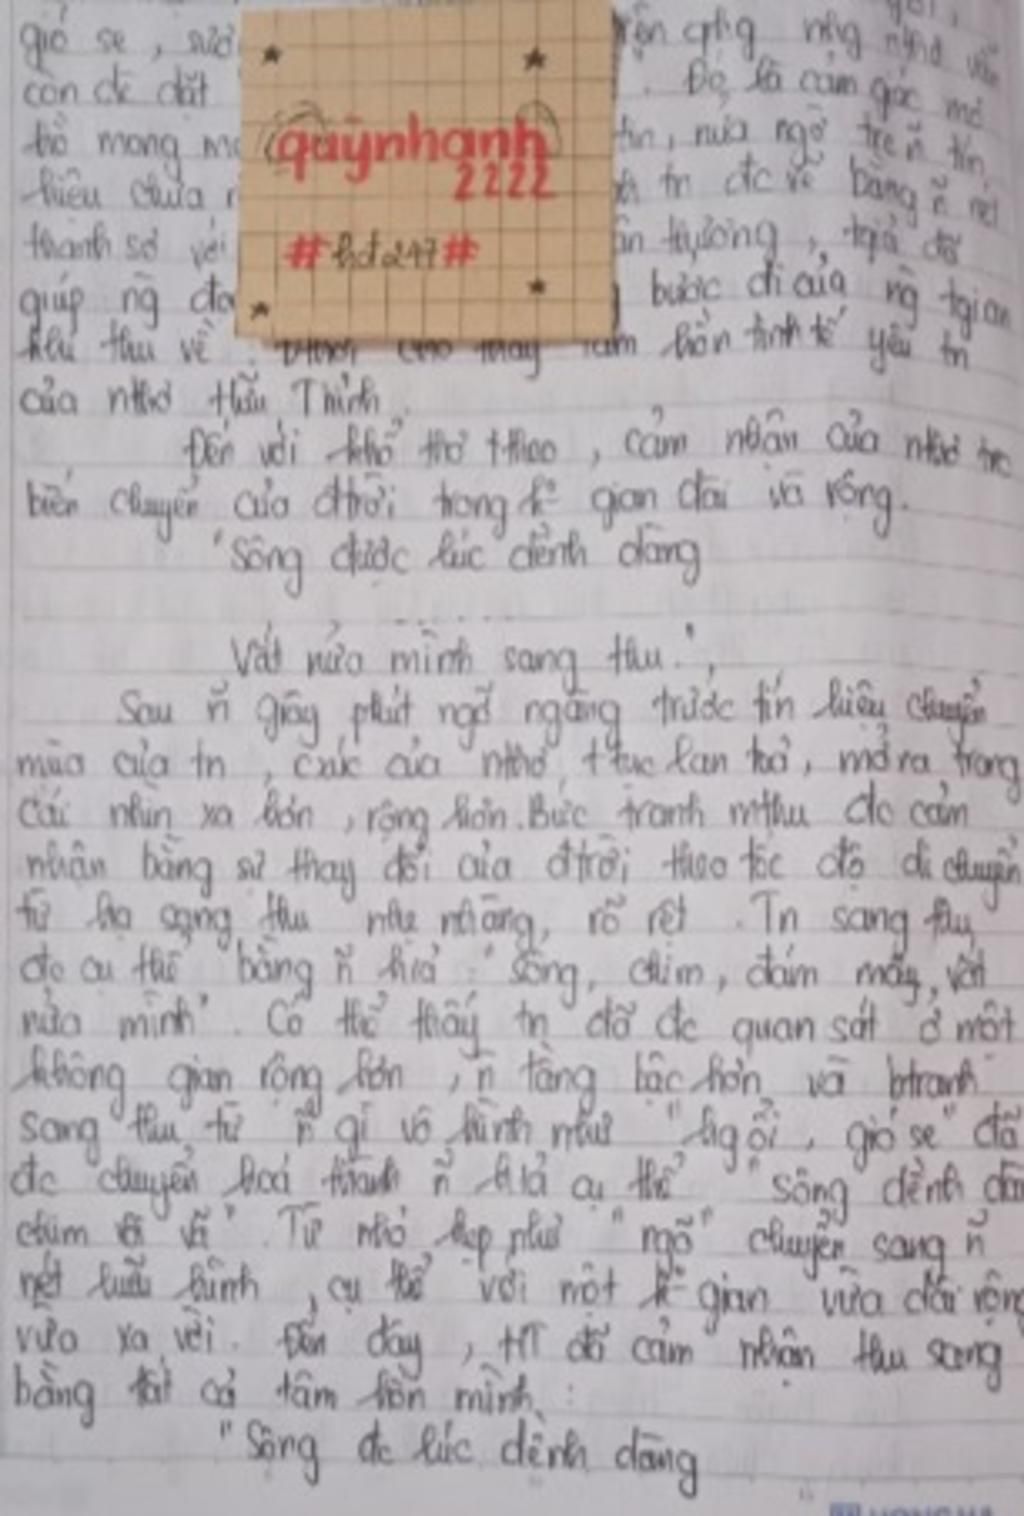 gió se, sươ
còn dè dặt . Đó là cảm giác mơ
hồ mong ma tin, nửa ngờ trc ~n tín
hiệu chưa r tn đc vẽ bằng ~n nét
thanh sơ với ân tượng, tgiả đã
giúp ng đọ bước đi của ng tgian
khi thu về. tâm hồn tinh tế yêu tn
của nthơ Hữu Thỉnh.
Đến với khổ thơ ttheo, cảm nhận của nthơ trc
biến chuyển của đtrời trong k gian dài và rộng.
"Sông được lúc dềnh dàng
......
Vắt nửa mình sang thu.",
Sau ~n giây phút ngỡ ngàng trước tín hiệu chuyển
mùa của tn, cxúc của nthơ ttục lan toả, mở ra trong
cái nhìn xa hơn, rộng hơn. Bức tranh mthu đc cảm
nhận bằng sự thay đổi của đtrời theo tốc độ di chuyển
từ hạ sang thu nhẹ nhàng, rõ rệt. Tn sang thu
đc cụ thể bằng ~n h/ả: "sông, chim, đám mây, vắt
nửa mình". Có thể thấy tn đã đc quan sát ở một
không gian rộng hơn, ~n tầng bậc hơn và btranh
sang thu từ ~n gì vô hình như "hg ổi, gió se" đã
đc chuyển hoá thành ~n h/ả cụ thể "sông dềnh dà
chim vội vã". Từ nhỏ hẹp như "ngõ" chuyển sang ~n
nét hữu hình, cụ thể với một k gian vừa dài rộng
vừa xa vời. Đến đây, HT đã cảm nhận thu sang
bằng tất cả tâm hồn mình:
"Sông đc lúc dềnh dàng
quỳnhanh
2222
#hd247#